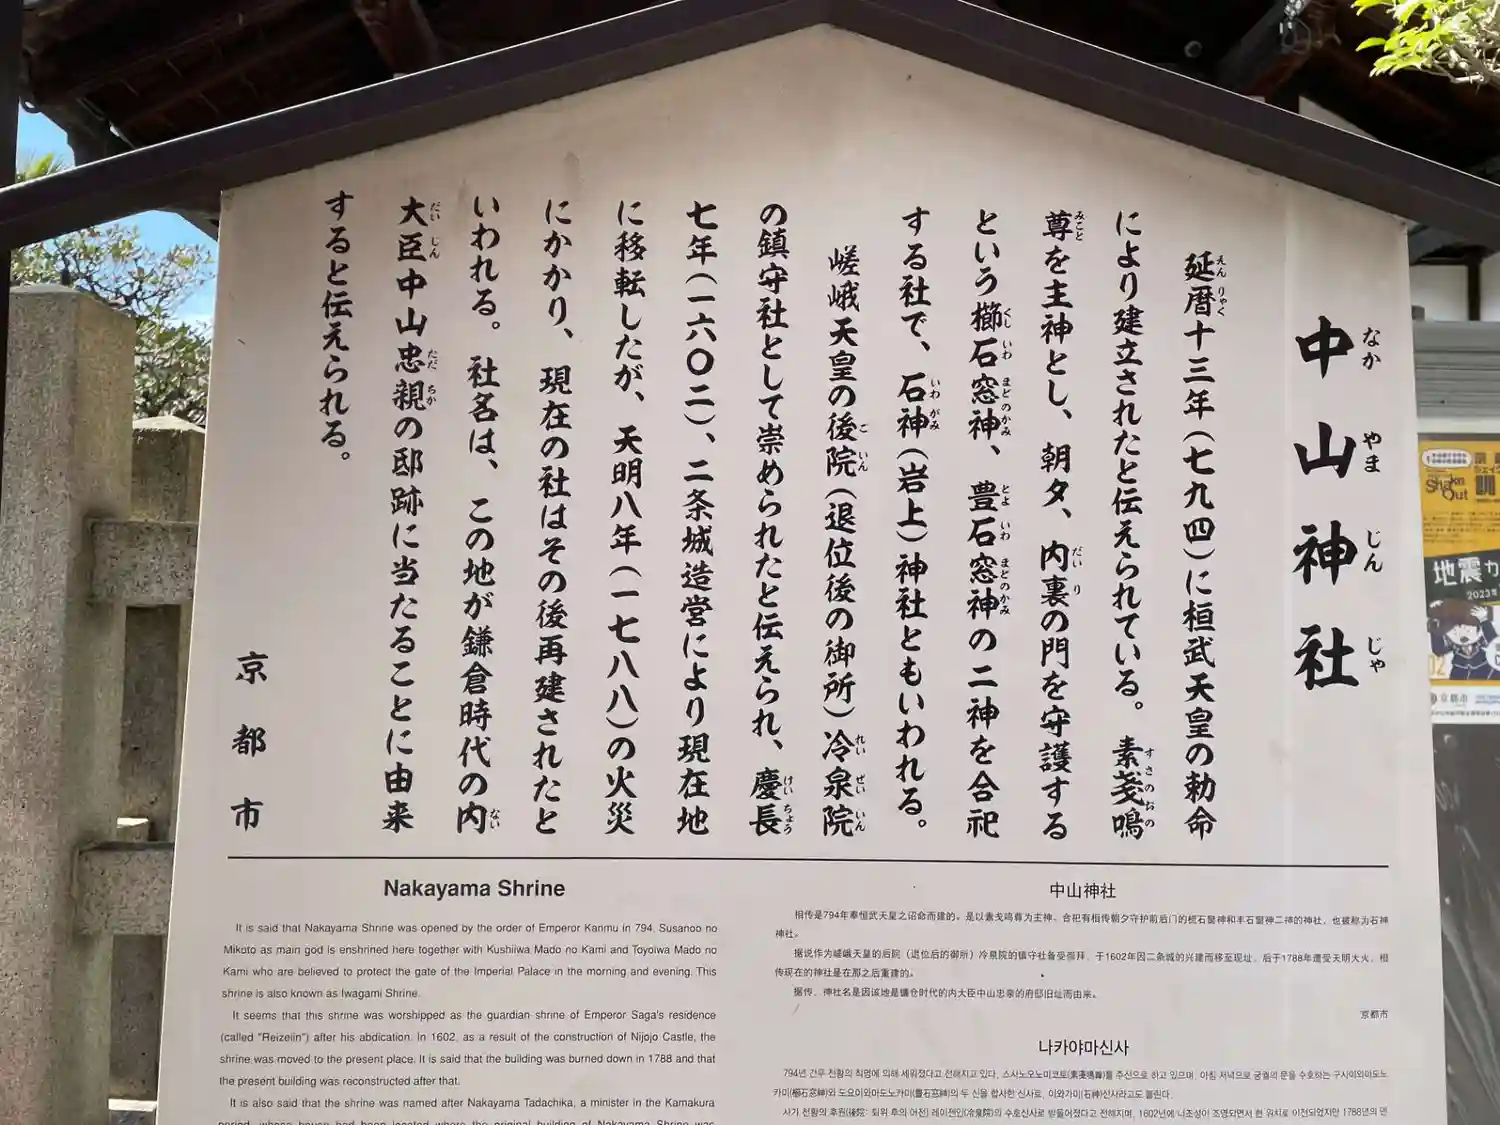 中山神社
なか やま じん じゃ
延暦十三年（七九四）に桓武天皇の勅命
えん りゃく
により建立されたと伝えられている。素戔鳴
すさのおの
尊を主神とし、朝夕、内裏の門を守護する
みこと だい り
という櫛石窓神、豊石窓神の二神を合祀
くし いわ まどのかみ とよ いわ まどのかみ
する社で、石神（岩上）神社ともいわれる。
いわ がみ
嵯峨天皇の後院（退位後の御所）冷泉院
こ いん れい ぜい いん
の鎮守社として崇められたと伝えられ、慶長
けい ちょう
七年（一六〇二）、二条城造営により現在地
に移転したが、天明八年（一七八八）の火災
にかかり、現在の社はその後再建されたと
いわれる。社名は、この地が鎌倉時代の内
ない
大臣中山忠親の邸跡に当たることに由来
だい じん ただ ちか
すると伝えられる。
京都市
Nakayama Shrine
It is said that Nakayama Shrine was opened by the order of Emperor Kanmu in 794. Susanoo no
Mikoto as main god is enshrined here together with Kushiiwa Mado no Kami and Toyoiwa Mado no
Kami who are believed to protect the gate of the Imperial Palace in the morning and evening. This
shrine is also known as Iwagami Shrine.
It seems that this shrine was worshipped as the guardian shrine of Emperor Saga's residence
(called "Reizeiin") after his abdication. In 1602, as a result of the construction of Nijojo Castle, the
shrine was moved to the present place. It is said that the building was burned down in 1788 and that
the present building was reconstructed after that.
It is also said that the shrine was named after Nakayama Tadachika, a minister in the Kamakura
period, whose house had been located where the original building of Nakayama Shrine was
中山神社
相传是794年奉恒武天皇之诏命而建的。是以素戈鸣尊为主神、合祀有相传朝夕守护前后门的栀石窗神和丰石窗神二神的神社，也被称为石神
神社。
据说作为嵯峨天皇的后院（退位后的御所）冷泉院的镇守社备受崇拜，于1602年因二条城的兴建而移至现址，后于1788年遭受天明大火，相
传现在的神社是在那之后重建的。
据传，神社名是因该地是镰仓时代的内大臣中山忠亲的府邸旧址而由来。
京都市
나카야마신사
794년 간무 천황의 칙명에 의해 세워졌다고 전해지고 있다. 스사노오노미코토(素戔鳴尊)를 주신으로 하고 있으며, 아침 저녁으로 궁궐의 문을 수호하는 구시이와마도노
카미(櫛石窓神)와 도요이와마도노카미(豊石窓神)의 두 신을 합사한 신사로, 이와가미(石神)신사라고도 불린다.
사가 천황의 후원(後院: 퇴위 후의 어전) 레이젠인(冷泉院)의 수호신사로 받들어졌다고 전해지며, 1602년에 니조성이 조영되면서 현 위치로 이전되었지만 1788년의 덴
Shake Out
地震
2023年
京都市